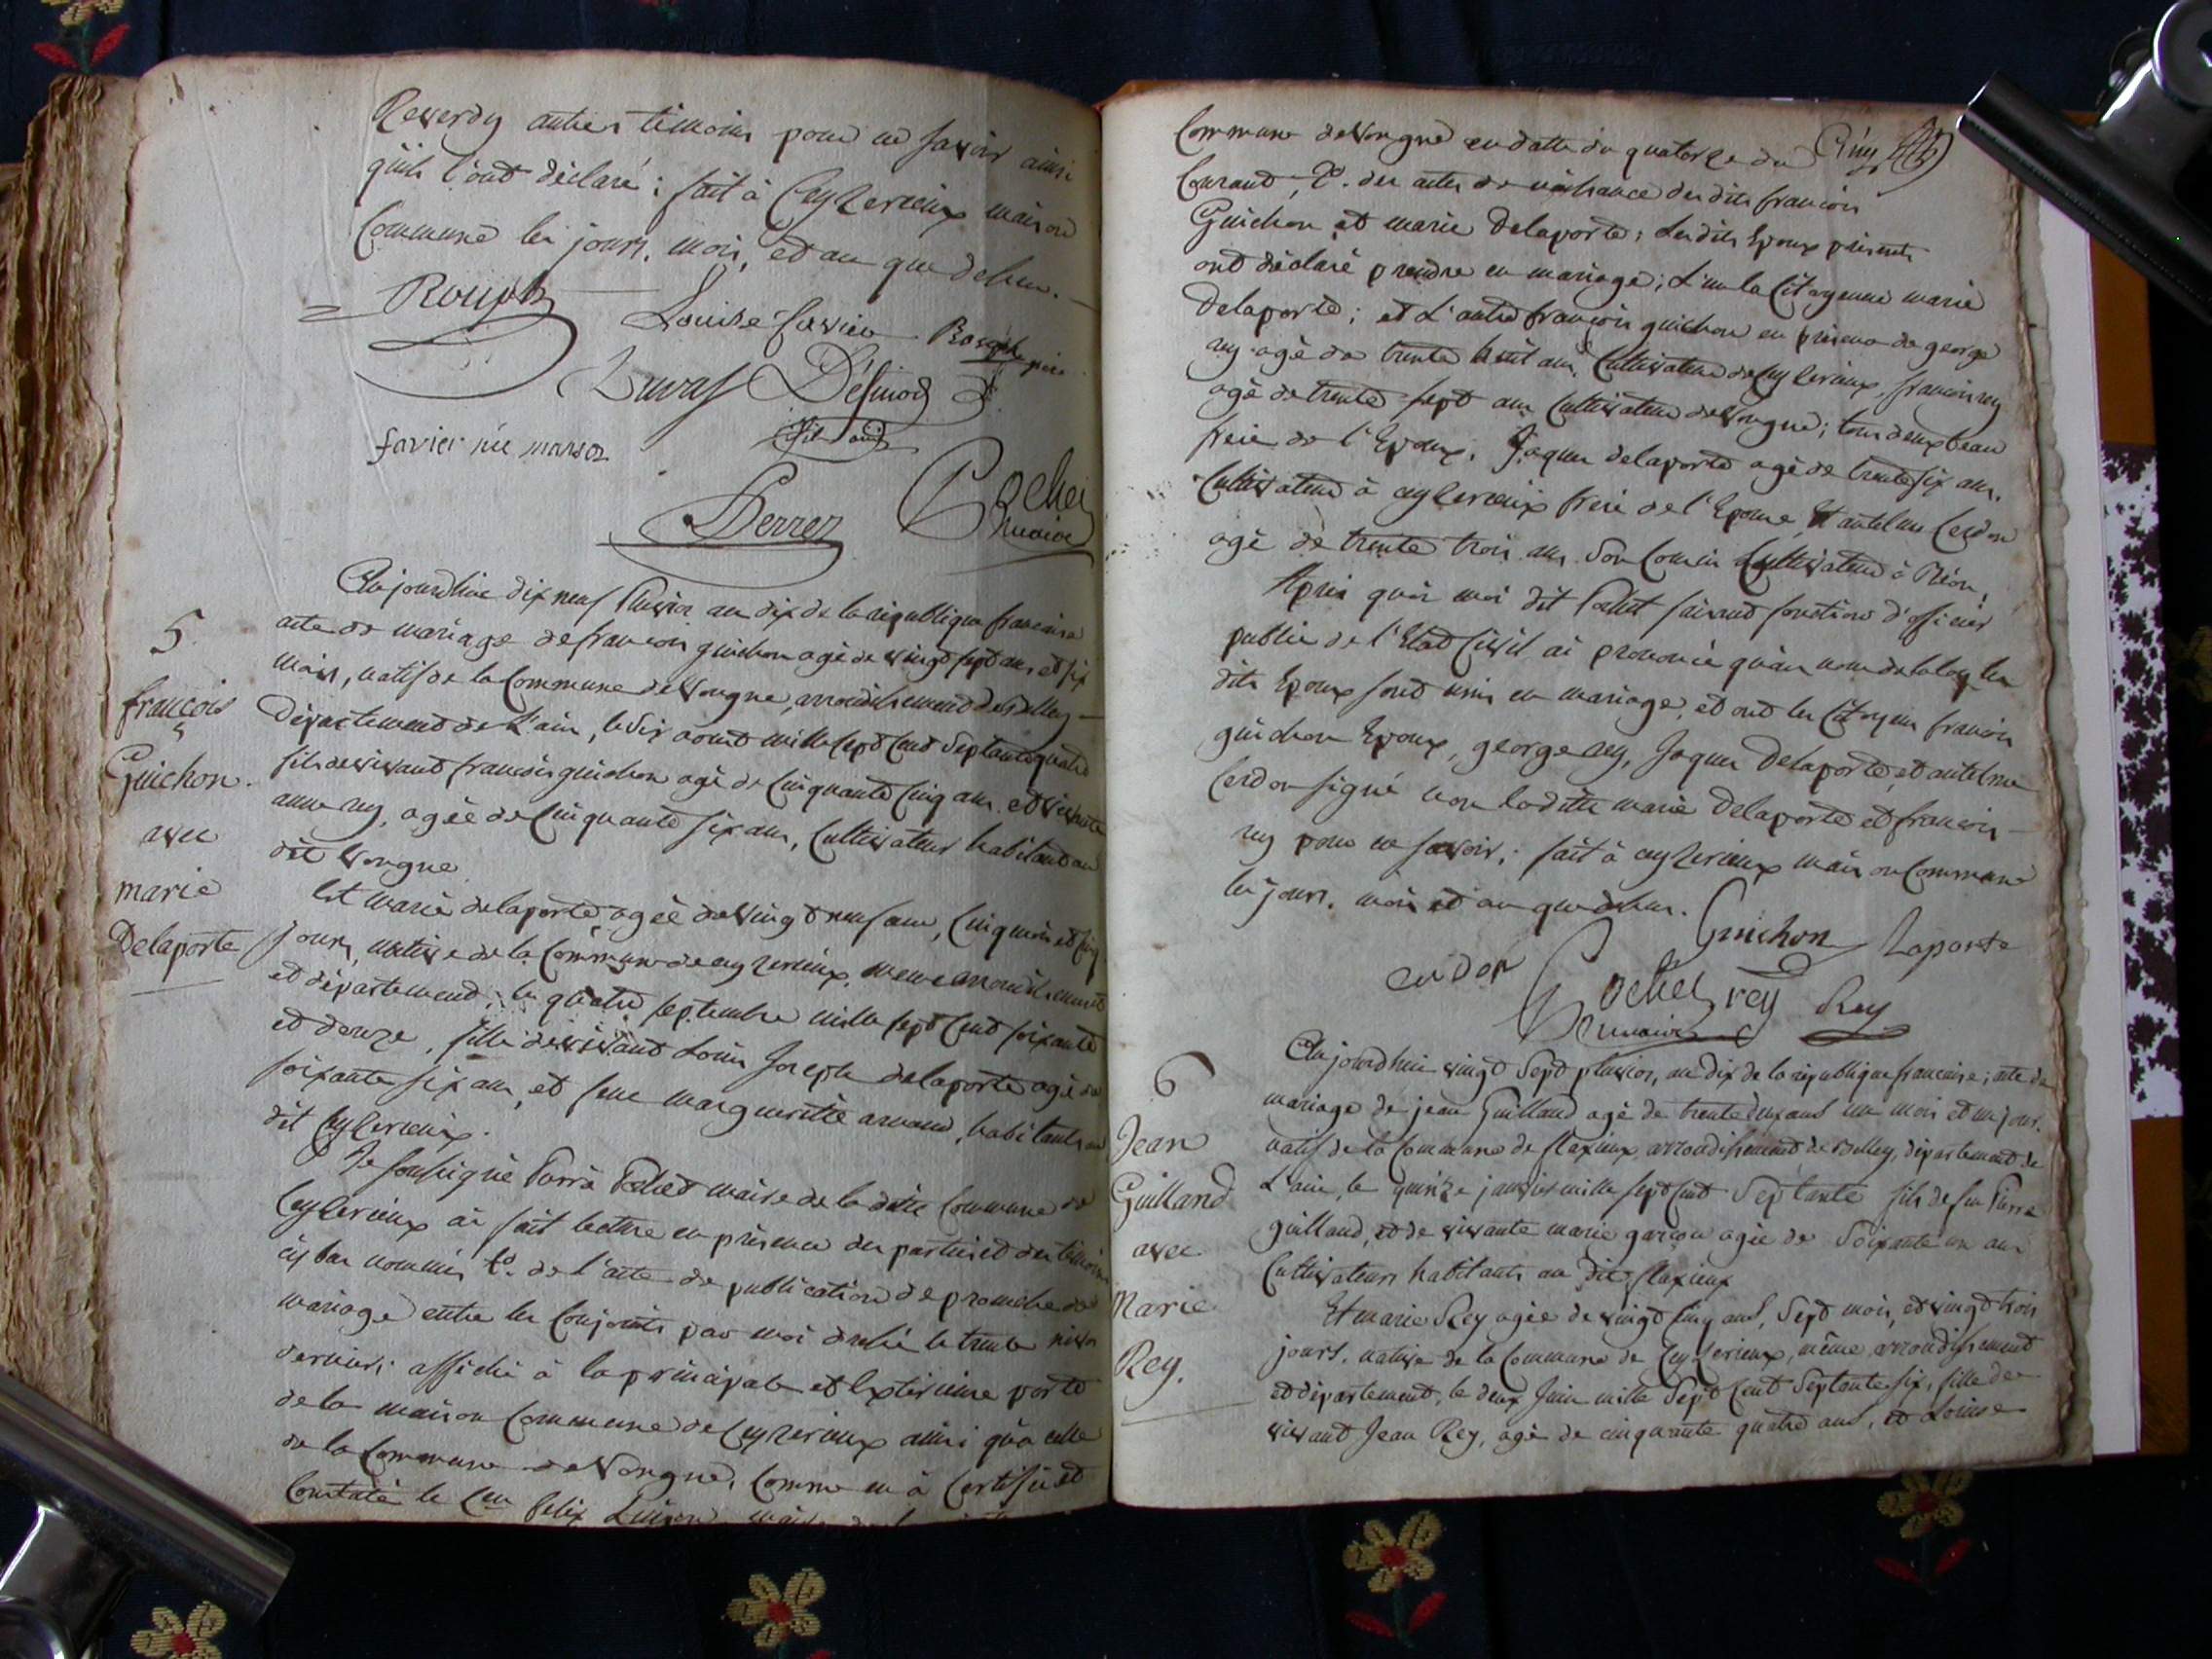 Reverdy autres témoins pour ne savoir ainsi
quils l'ont déclaré ; fait à Ceyzerieux maison
Commune les jours, mois, et an que dessus.
Louise favier
père
Duval Désinod
favier née
Perret
Pochet
maire
5
françois
Guichon.
avec
marie
Delaporte
Aujourdhui dix neuf Pluviose an dix de la république française
acte de mariage de françois guichon agé de vingt sept ans et six
mois, natif de la Commune de Vongne, arrondissement de Belley
Département de L'ain, le six aoust mille sept cent septante quatre
fils de vivant françois guichon agé de Cinquante Cinq ans et vivante
anne rey, agée de Cinquante six ans, Cultivateurs habitants au
dit Vongne
Et marie delaporte, agée de vingt neuf ans, Cinq mois et
jours, native de la Commune de ceyzerieux, meme arrondissement
et département, le quatre septembre mille sept cent soixante
et douze, fille de vivant Louis Joseph delaporte agé de
soixante six ans, et feue margueritte arnaud, habitants au
dit Ceyzerieux.
Je soussigné Pochet maire de la ditte Commune de
Ceyzerieux ai fait lecture en présence des parties et des témoins
cy bas nommés 1°. de l'acte de publication de promesse de
mariage entre les Conjoints par moi le trente nivose
dernier ; affiché à la principale et Extérieure porte
de la maison Commune de Ceyzerieux ainsi qu'à celle
de la Commune de Vongne, Comme en à Certifié et
Constaté le Cen felix maire
Commune de Vongne en datte du quatorze du
Courant, 2°. des actes de naissance des dits françois
Guichon et marie Delaporte ; Les dits Epoux présents
ont déclaré prendre en mariage ; L'un la Citoyenne marie
Delaporte ; et L'autre françois guichon en présence de george
rey agé de trente huit ans, Cultivateur de Ceyzerieux, françois rey
agé de trente sept ans Cultivateur de Vongne ; tous deux beau
frere de l'Epoux, Jaques delaporte agé de trente six ans,
Cultivateur à ceyzerieux frere de l'Epouse, Et antelme Cerdon
agé de trente trois ans Son Cousin Cultivateur à
Après quoi moi dit Pochet faisant fonctions d'officier
public de l'Etat Civil ai prononcé qu'au nom de la loy les
dits Epoux sont unis en mariage, et ont les Citoyens françois
guichon Epoux, george rey, Jaques Delaporte, et antelme
Cerdon signé non la ditte marie Delaporte et françois
rey pour ne savoir ; fait à ceyzerieux maison Commune
les jours, mois et an que dessus.
Guichon Laporte
Pochet rey Rey
maire
6
Jean
Guilland
avec
Marie
Rey.
Aujourdhui vingt Sept pluviose, an dix de la république francaise ; acte de
mariage de jean Guilland agé de trente deux ans un mois et un jour.
natif de la Commune de flaxieux, arrondissement de Belley, département de
L'ain, le quinze janvier mille sept cent Septante fils de feu Pierre
guilland, et de vivante marie garçon agée de Soixante un ans
Cultivateurs habitants au dit flaxieux
Et marie Rey agée de vingt Cinq ans, Sept mois, et vingt trois
jours. native de la Commune de Ceyzerieux, même arrondissement
et département, le deux Juin mille Sept Cent Septante six, fille de
vivant Jean Rey, agé de cinquante quatre ans, et Louise